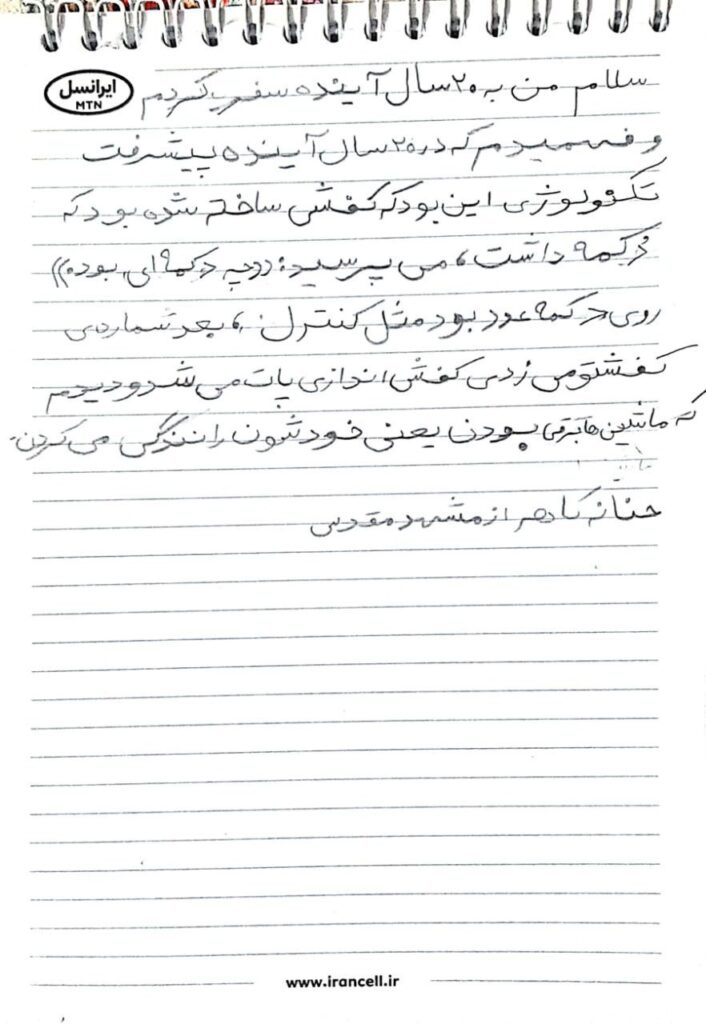 ایرانسل
MTN
سلام من به ۲۰ سال آینده سفر کردم
و فهمیدم که در ۲۰ سال آینده پیشرفت
تکنولوژی این بود که کفشی ساخته شده بود که
دکمه داشت، می پرسید: ((چه دکمه ای بود؟))
روی دکمه عدد بود مثل کنترل، بعد شماره‌ی
کفشتو می زدی کفش اندازی پات می شد و دیدم
که ماشین ها برقی بودن یعنی خودشون رانندگی می کردن.
حنانه از مشهد مقدس
www.irancell.ir